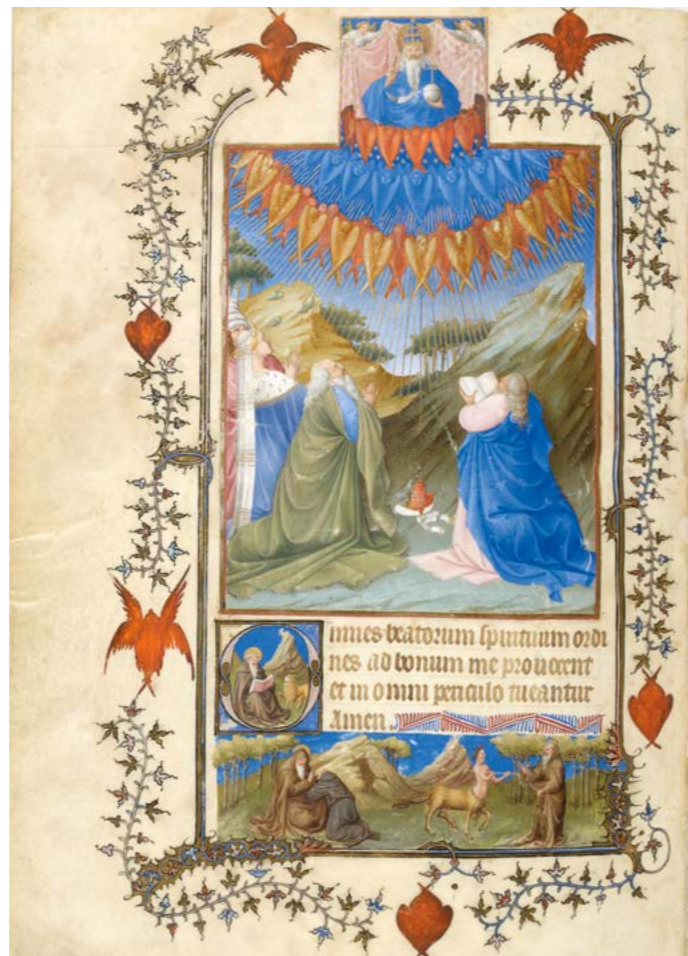 Omnes beatorum spirituum ordi
nes ad bonum me provocent
et in omni periculo tueantur
Amen.